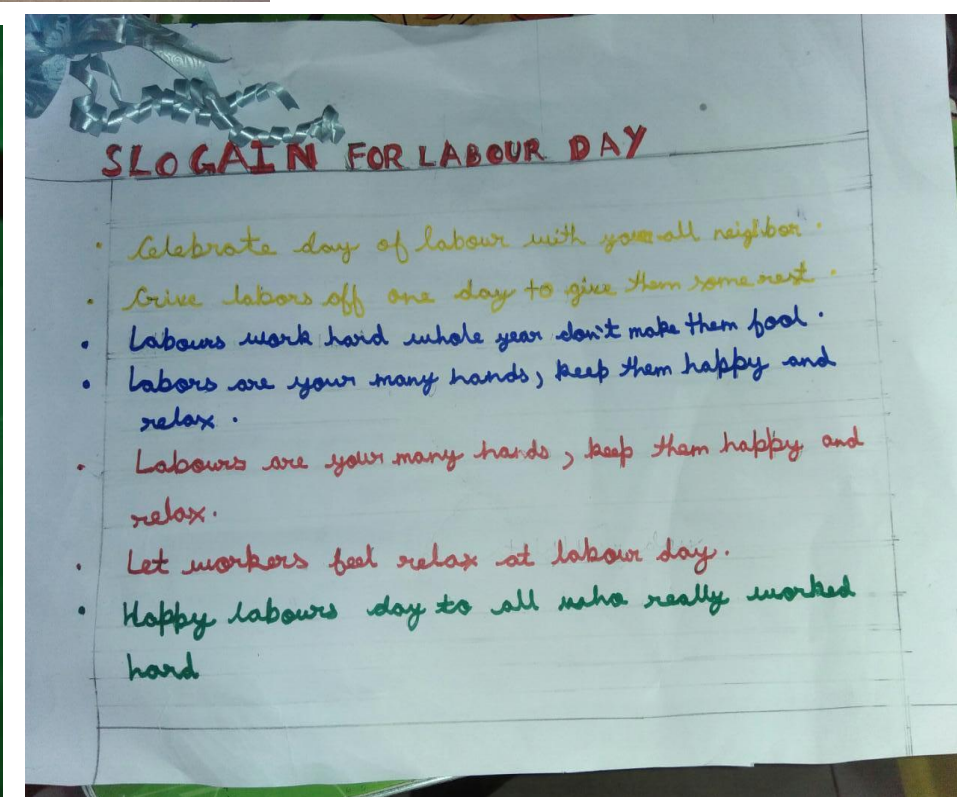 SLOGAIN FOR LABOUR DAY
• Celebrate day of labour with your all neighbor.
• Give labors off one day to give them some rest.
• Labours work hard whole year don't make them fool.
• Labors are your many hands, keep them happy and
relax.
• Labours are your many hands, keep them happy and
relax.
• Let workers feel relax at labour day.
• Happy labours day to all who really worked
hard